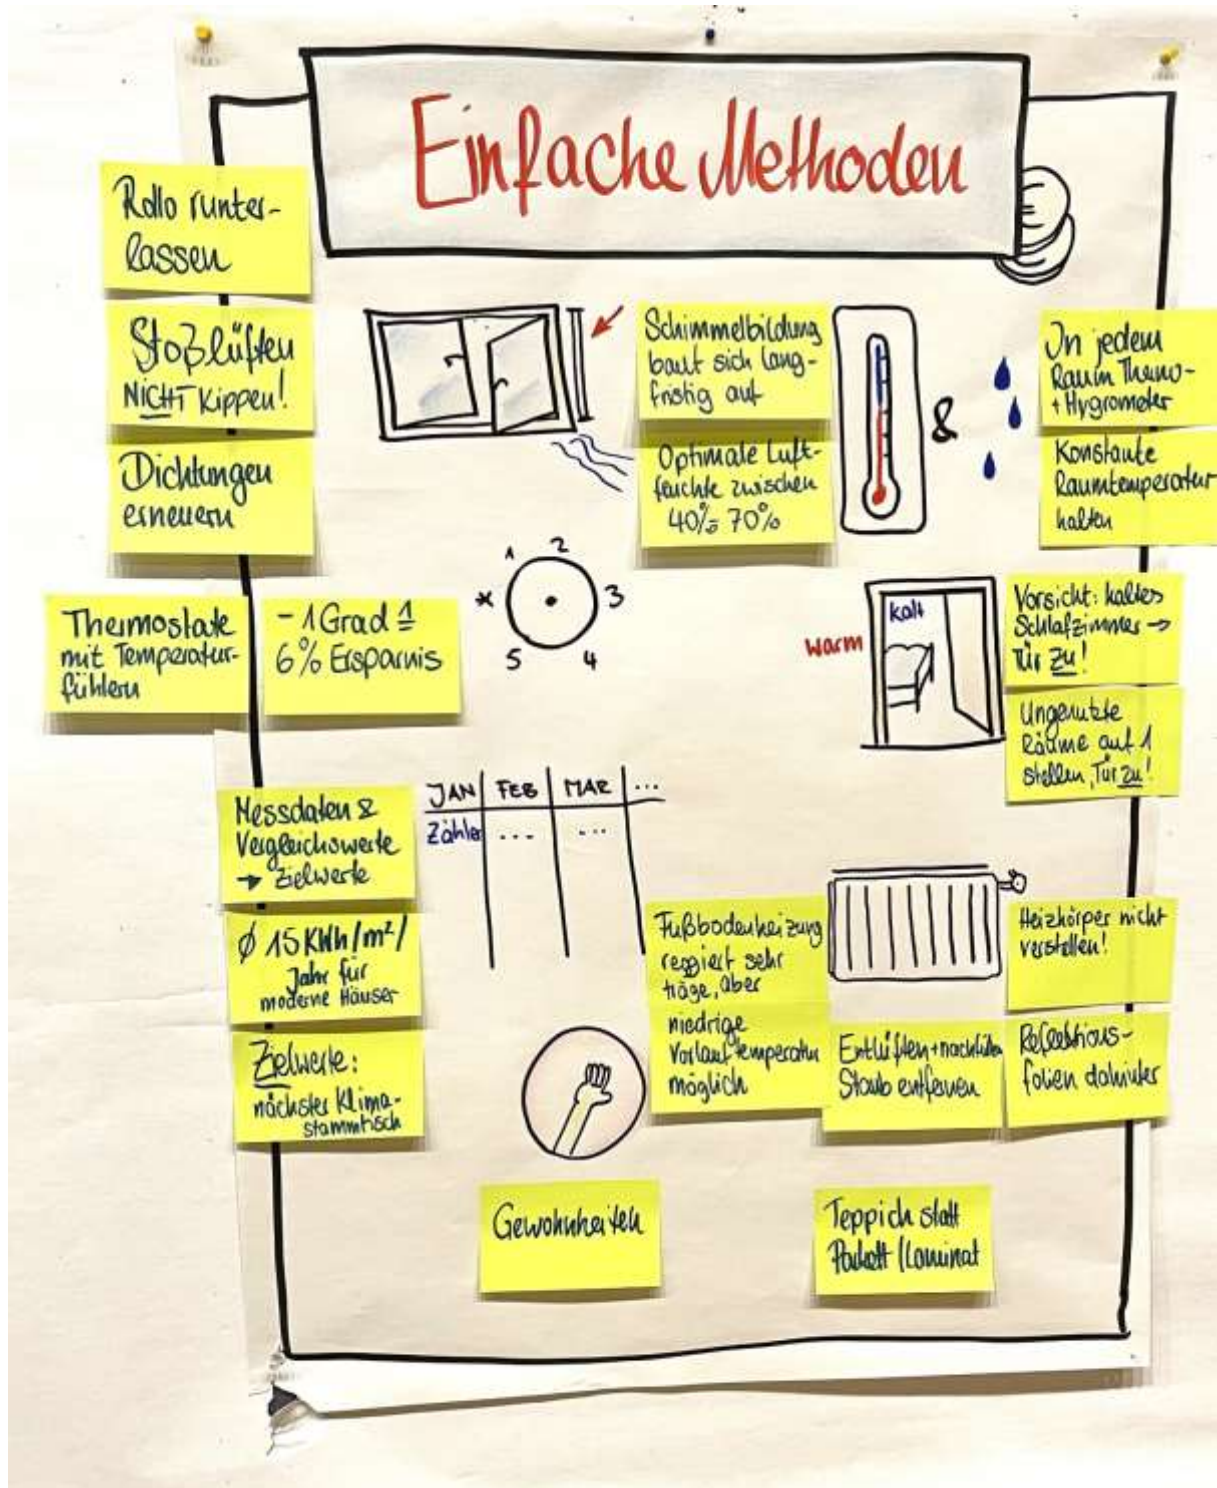 Einfache Methoden
Rollo runter-
lassen
Stoßlüften
NICHT kippen!
Dichtungen
erneuern
Schimmelbildung
baut sich lang-
fristig auf
Optimale Luft-
feuchte zwischen
40% - 70%
&
In jedem
Raum Thermo-
+ Hygrometer
Konstante
Raumtemperatur
halten
Thermostate
mit Temperatur-
fühlern
- 1 Grad ≙
6% Ersparnis
* 1 2 3 4 5
warm
kalt
Vorsicht: kaltes
Schlafzimmer →
Tür zu!
Ungenutzte
Räume auf 1
stellen, Tür zu!
Messdaten &
Vergleichswerte
→ Zielwerte
Ø 15 KWh/m²/
Jahr für
moderne Häuser
Zielwerte:
nächster Klima-
stammtisch
JAN FEB MAR ...
Zähler ... ...
Fußbodenheizung
reagiert sehr
träge, aber
niedrige
Vorlauftemperatur
möglich
Heizkörper nicht
verstellen!
Entlüften + nachfüllen
Staub entfernen
Reflektions-
folien dahinter
Gewohnheiten
Teppich statt
Parkett / Laminat